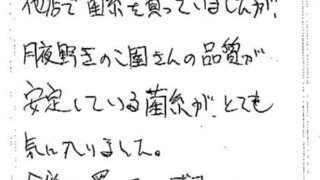 他店で菌糸を買っていましたが、
月夜野きのこ園さんの品質が
安定している菌糸が、とても
気に入りました。